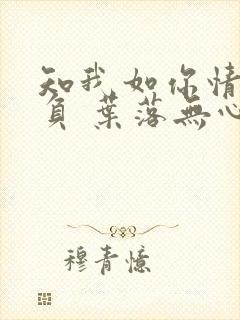 知我如你情
負 葉落無心
穆青憶